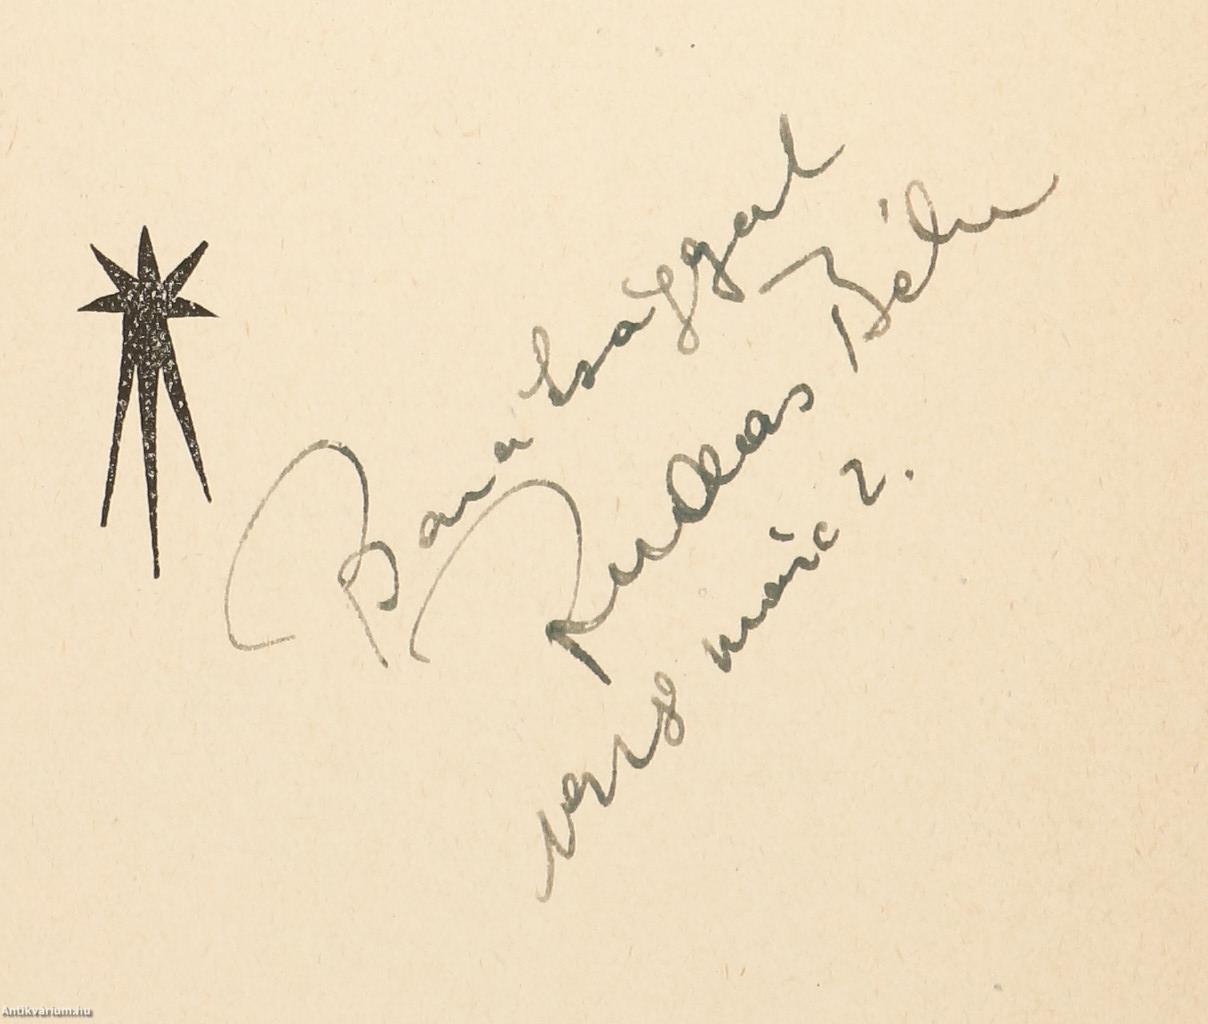 Barátsággal
Béla
1958 márc 2.
Antikvárium.hu